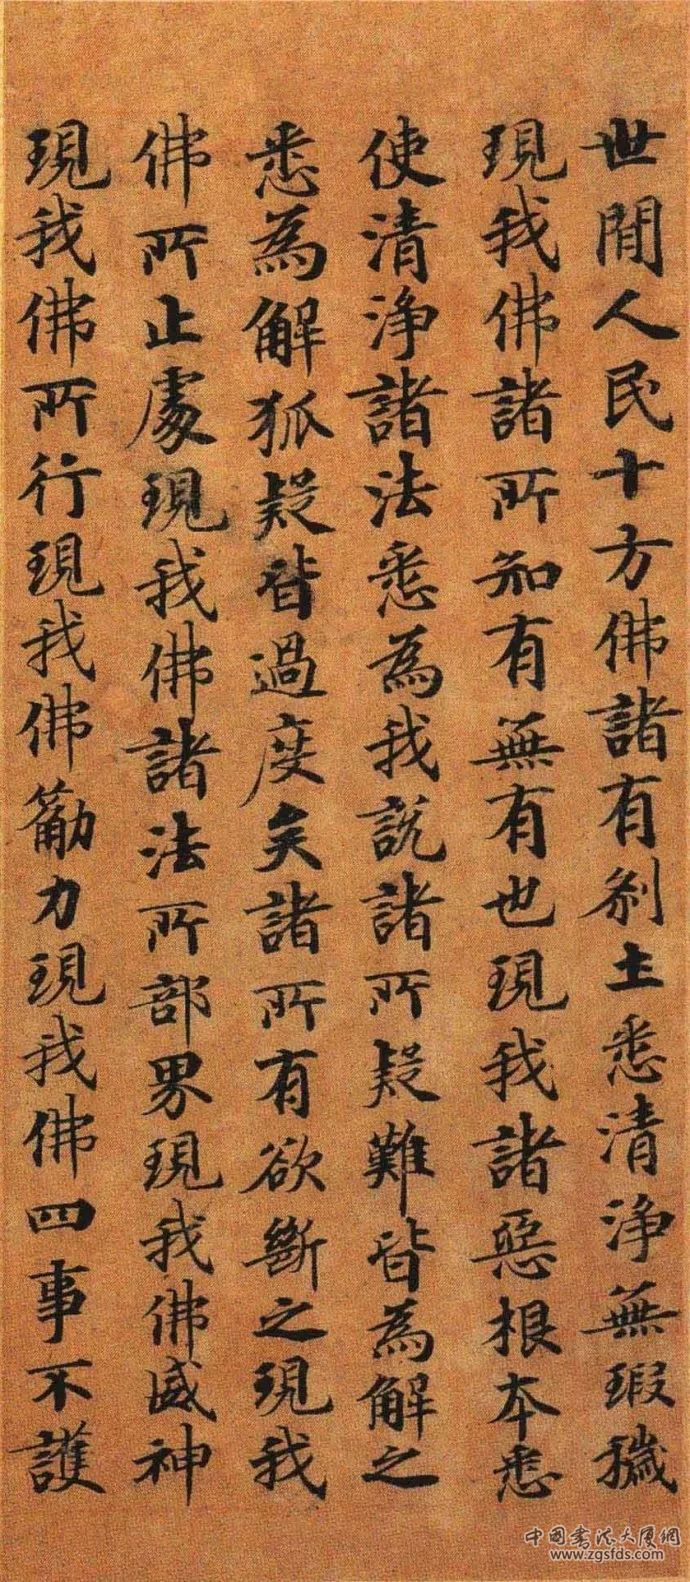 世間人民十方佛諸有刹土悉清淨無瑕穢
現我佛諸所知有無有也現我諸惡根本悉
使清淨諸法悉為我説諸所疑難皆為解之
悉為解狐疑皆過度矣諸所有欲斷之現我
佛所止處現我佛諸法所部界現我佛威神
現我佛所行現我佛勸力現我佛四事不護
中国書法大厦網
www.zgsfds.com